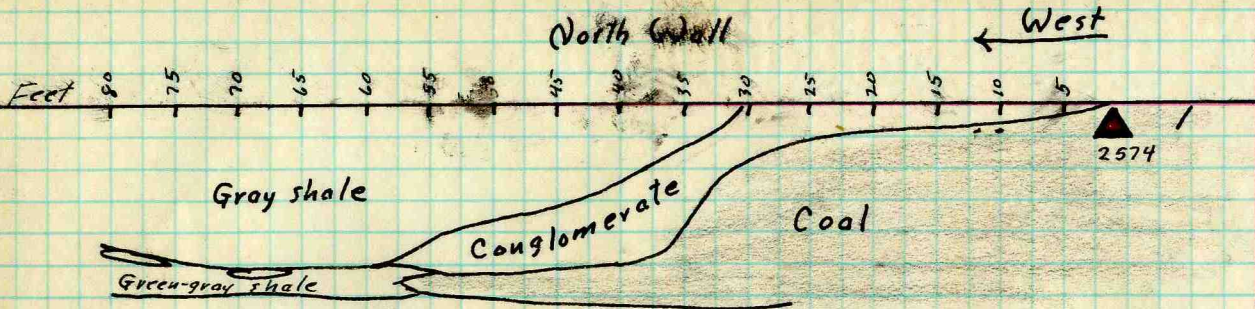 North Wall
West
Feet 80 75 70 65 60 55 50 45 40 35 30 25 20 15 10 5
2574
Gray shale
Conglomerate
Coal
Green-gray shale